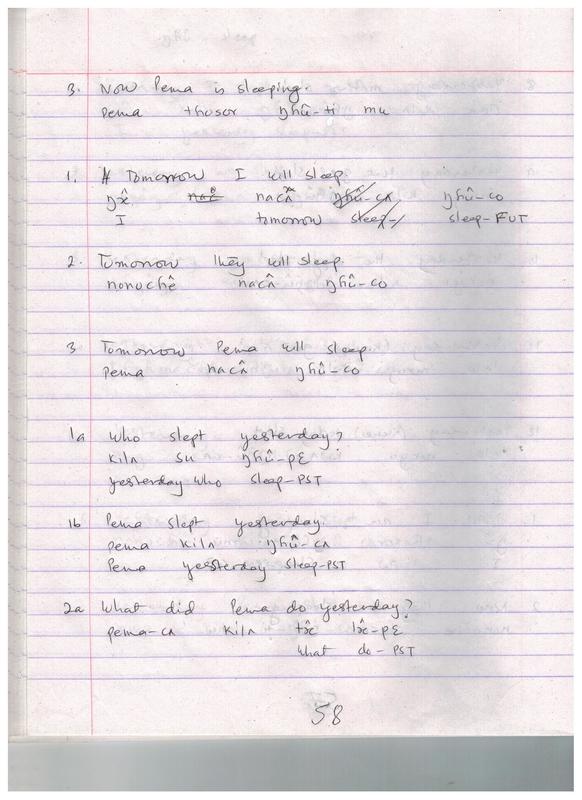 3. Now Pema is sleeping.
Pema thosor ŋɦû-ti mu
1. Tomorrow I will sleep.
ŋæ̂ nacʌ̂ ŋɦû-cʌ ŋɦû-co
I tomorrow sleep- sleep-FUT
2. Tomorrow They will sleep.
nonuchê nacʌ̂ ŋɦû-co
3 Tomorrow Pema will sleep.
Pema nacʌ̂ ŋɦû-co
1a Who slept yesterday?
kilʌ su ŋɦû-pɛ
yesterday who sleep-PST
1b Pema slept yesterday.
pema kilʌ ŋɦû-cʌ
Pema yesterday sleep-PST
2a What did Pema do yesterday?
pema-cʌ kilʌ tæ̂ læ̂-pɛ
what do-PST
58